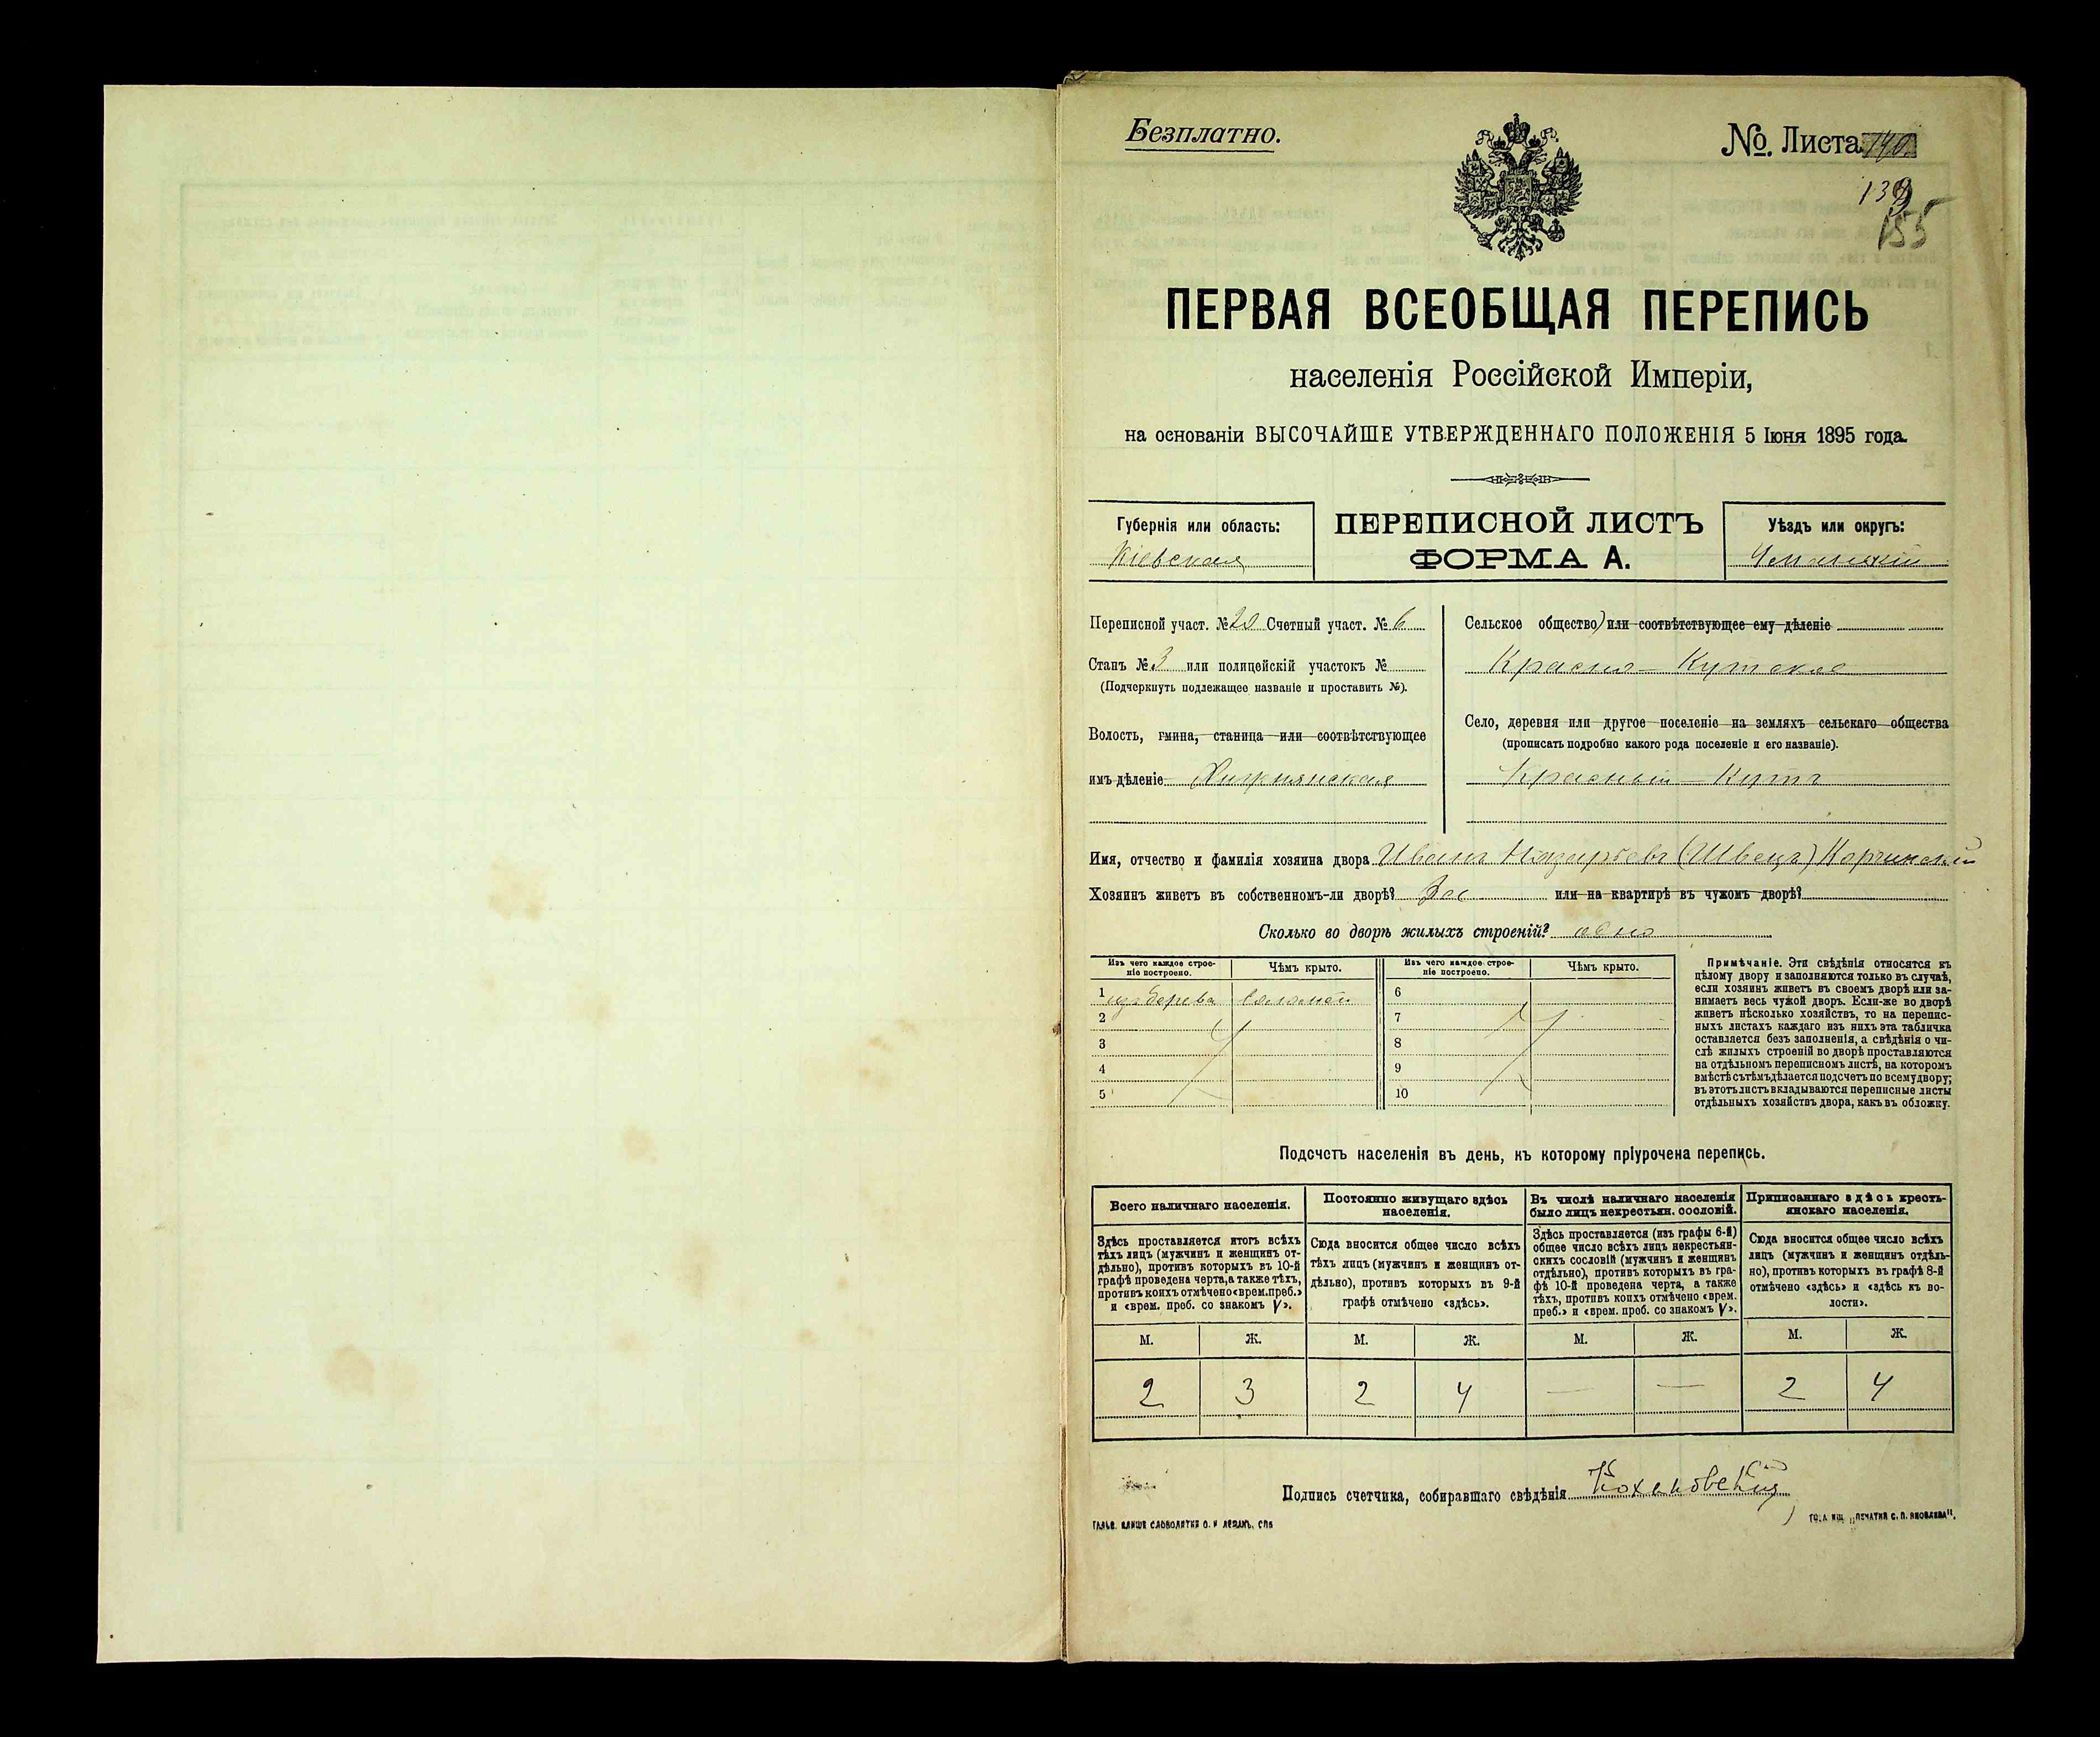 Безплатно.
№. Листа 140.
139
155
ПЕРВАЯ ВСЕОБЩАЯ ПЕРЕПИСЬ
населенія Россійской Имперіи,
на основаніи ВЫСОЧАЙШЕ УТВЕРЖДЕННАГО ПОЛОЖЕНІЯ 5 Іюня 1895 года.
Губернія или область:
Кіевская
ПЕРЕПИСНОЙ ЛИСТЪ
ФОРМА А.
Уѣздъ или округъ:
Уманскій
Переписной участ. № 20 Счетный участ. № 6
Станъ № 3 или полицейскій участокъ №
(Подчеркнуть подлежащее названіе и проставить №).
Волость, гмина, станица или соотвѣтствующее
имъ дѣленіе Хижнянская
Сельское общество) или соотвѣтствующее ему дѣленіе
Красно-Кутское
Село, деревня или другое поселеніе на земляхъ сельскаго общества
(прописать подробно какого рода поселеніе и его названіе).
Красный-Кутъ
Имя, отчество и фамилія хозяина двора Иванъ Назарьевъ (Швецъ) Корчинскій
Хозяинъ живетъ въ собственномъ-ли дворѣ? Да или на квартирѣ въ чужомъ дворѣ?
Сколько во дворѣ жилыхъ строеній? одно
Изъ чего каждое строе-
ніе построено.
Чѣмъ крыто.
Изъ чего каждое строе-
ніе построено.
Чѣмъ крыто.
1 изъ дерева соломой
2
3
4
5
6
7
8
9
10
Примѣчаніе. Эти свѣдѣнія относятся къ
цѣлому двору и заполняются только въ случаѣ,
если хозяинъ живетъ въ своемъ дворѣ или за-
нимаетъ весь чужой дворъ. Если-же во дворѣ
живетъ нѣсколько хозяйствъ, то на перепис-
ныхъ листахъ каждаго изъ нихъ эта табличка
оставляется безъ заполненія, а свѣдѣнія о чи-
слѣ жилыхъ строеній во дворѣ проставляются
на отдѣльномъ переписномъ листѣ, на которомъ
вмѣстѣ съ тѣмъ дѣлается подсчетъ по всему двору;
въ этотъ листъ вкладываются переписные листы
отдѣльныхъ хозяйствъ двора, какъ въ обложку.
Подсчетъ населенія въ день, къ которому пріурочена перепись.
Всего наличнаго населенія.
Здѣсь проставляется итогъ всѣхъ
тѣхъ лицъ (мужчинъ и женщинъ от-
дѣльно), противъ которыхъ въ 10-й
графѣ проведена черта, а также тѣхъ,
противъ коихъ отмѣчено «врем. преб.»
и «врем. преб. со знакомъ V».
Постоянно живущаго здѣсь
населенія.
Сюда вносится общее число всѣхъ
тѣхъ лицъ (мужчинъ и женщинъ от-
дѣльно), противъ которыхъ въ 9-й
графѣ отмѣчено «здѣсь».
Въ числѣ наличнаго населенія
было лицъ некрестьян. сословій.
Здѣсь проставляется (изъ графы 6-й)
общее число всѣхъ лицъ некрестьян-
скихъ сословій (мужчинъ и женщинъ
отдѣльно), противъ которыхъ въ гра-
фѣ 10-й проведена черта, а также
тѣхъ, противъ коихъ отмѣчено «врем.
преб.» и «врем. преб. со знакомъ V».
Приписаннаго здѣсь кресть-
янскаго населенія.
Сюда вносится общее число всѣхъ
лицъ (мужчинъ и женщинъ отдѣль-
но), противъ которыхъ въ графѣ 8-й
отмѣчено «здѣсь» и «здѣсь къ во-
лости».
М. Ж. М. Ж. М. Ж. М. Ж.
2 3 2 4 — — 2 4
Подпись счетчика, собиравшаго свѣдѣнія Кохановскій